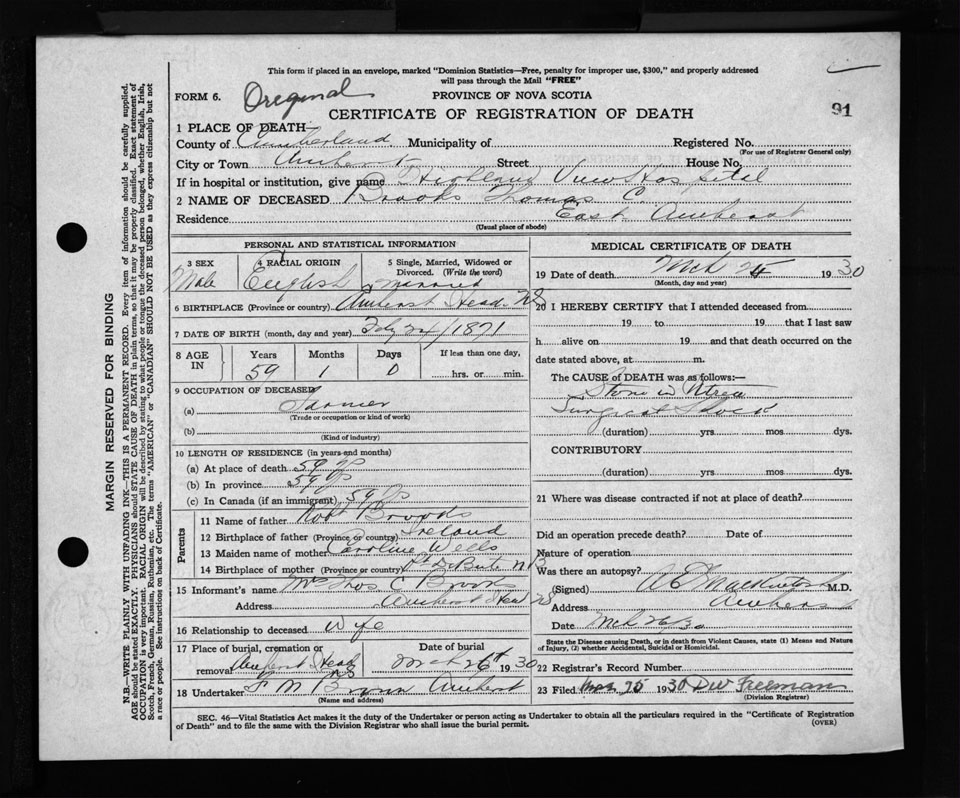 This form if placed in an envelope, marked "Dominion Statistics—Free, penalty for improper use, $300," and properly addressed
will pass through the Mail "FREE"
FORM 6. Original PROVINCE OF NOVA SCOTIA
CERTIFICATE OF REGISTRATION OF DEATH 91
1 PLACE OF DEATH—
County of Cumberland Municipality of Registered No.
(For use of Registrar General only)
City or Town Amherst Street House No.
If in hospital or institution, give name Highland View Hospital
2 NAME OF DECEASED Brooks Thomas C.
Residence East Amherst
(Usual place of abode)
PERSONAL AND STATISTICAL INFORMATION
3 SEX 4 RACIAL ORIGIN 5 Single, Married, Widowed or Divorced. (Write the word)
Male English Married
6 BIRTHPLACE (Province or country) Amherst Head NS
7 DATE OF BIRTH (month, day and year) Feby 24/1871
8 AGE IN Years Months Days If less than one day,
59 1 0 hrs. or min.
9 OCCUPATION OF DECEASED
(a) Farmer
(Trade or occupation or kind of work)
(b)
(Kind of industry)
10 LENGTH OF RESIDENCE (in years and months)
(a) At place of death 59 ys
(b) In province 59 ys
(c) In Canada (if an immigrant) 59 ys
Parents
11 Name of father Robt Brooks
12 Birthplace of father (Province or country) Ireland
13 Maiden name of mother Caroline Wells
14 Birthplace of mother (Province or country) Pt DeBute NB
15 Informant's name Mrs Thos C Brooks
Address Amherst Head NS
16 Relationship to deceased Wife
17 Place of burial, cremation or removal Amherst Head NS Date of burial Mch 26th 1930
18 Undertaker F M Brown Amherst
(Name and address)
MEDICAL CERTIFICATE OF DEATH
19 Date of death Mch 24 1930
(Month, day and year)
20 I HEREBY CERTIFY that I attended deceased from
19 to 19 that I last saw
h alive on 19 and that death occurred on the
date stated above, at m.
The CAUSE OF DEATH was as follows:—
Stone in
Surgical Shock
(duration) yrs mos dys.
CONTRIBUTORY
(duration) yrs mos dys.
21 Where was disease contracted if not at place of death?
Did an operation precede death? Date of
Nature of operation
Was there an autopsy?
(Signed) Mackintosh M.D.
Address Amherst
Date Mch 26/30
State the Disease causing Death, or in death from Violent Causes, state (1) Means and Nature
of Injury, (2) whether Accidental, Suicidal or Homicidal.
22 Registrar's Record Number
23 Filed Mar 25 1930 Freeman
(Division Registrar)
SEC. 46—Vital Statistics Act makes it the duty of the Undertaker or person acting as Undertaker to obtain all the particulars required in the "Certificate of Registration
of Death" and to file the same with the Division Registrar who shall issue the burial permit. (OVER)
MARGIN RESERVED FOR BINDING
N.B.—WRITE PLAINLY WITH UNFADING INK—THIS IS A PERMANENT RECORD. Every item of information should be carefully supplied.
AGE should be stated EXACTLY. PHYSICIANS should STATE CAUSE OF DEATH in plain terms, so that it may be properly classified. Exact statement of
OCCUPATION is very important. RACIAL ORIGIN will be described by stating to what people or tongue the deceased person belonged, whether English, Irish,
Scotch, French, German, Russian, Ruthenian, etc. The terms "AMERICAN" or "CANADIAN" SHOULD NOT BE USED as they express citizenship but not
a race or people. See instructions on back of Certificate.